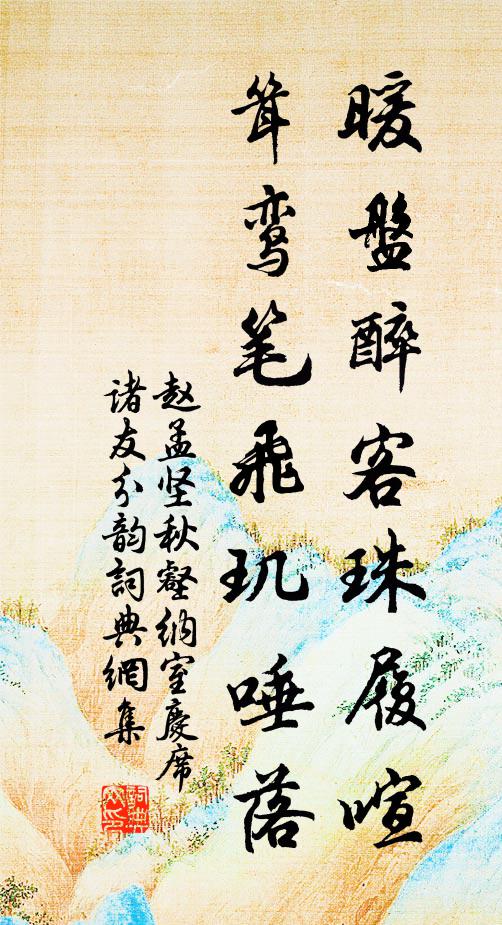 暖盤醉客珠履喧
箕鸾笔飛玑唾落
赵孟坚秋壑纳室慶席
诸友分韵詞典網集